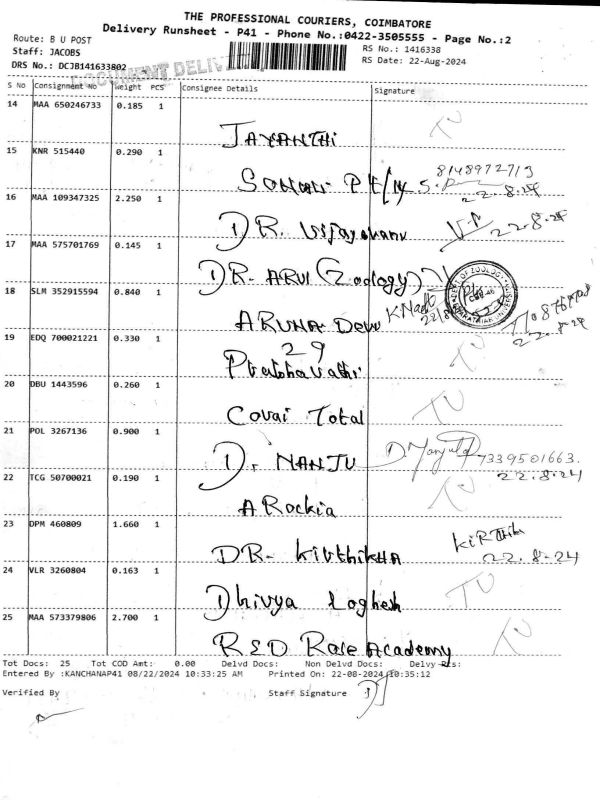 THE PROFESSIONAL COURIERS, COIMBATORE
Delivery Runsheet - P41 - Phone No.:0422-3505555 - Page No.:2
Route: B U POST
Staff: JACOBS
RS No.: 1416338
DRS No.: DCJB141633802
RS Date: 22-Aug-2024
S No Consignment No Weight PCS Consignee Details Signature
14 MAA 650246733 0.185 1
JAYANTHi TU
15 KNR 515440 0.290 1
8148972713
22.8.24
16 MAA 109347325 2.250 1
DR. 22.8.24
17 MAA 575701769 0.145 1
DR- ARUL (Zoology)
18 SLM 352915594 0.840 1
ARUNA Devi
22.8.24
19 EDQ 700021221 0.330 1
29
Prabhavathi TU
20 DBU 1443596 0.260 1
Covai Total TU
21 POL 3267136 0.900 1
Dr NANJU 7339501663.
22.8.24
22 TCG 50700021 0.190 1
TU
A Rockia
23 DPM 460809 1.660 1
DR- Kiuthikha
22.8-24
24 VLR 3260804 0.163 1
Dhivya Loghesh TU
25 MAA 573379806 2.700 1
RED Rose Academy TU
Tot Docs: 25 Tot COD Amt: 0.00 Delvd Docs: Non Delvd Docs: Delvy Rts:
Entered By :KANCHANAP41 08/22/2024 10:33:25 AM Printed On: 22-08-2024 10:35:12
Verified By Staff Signature